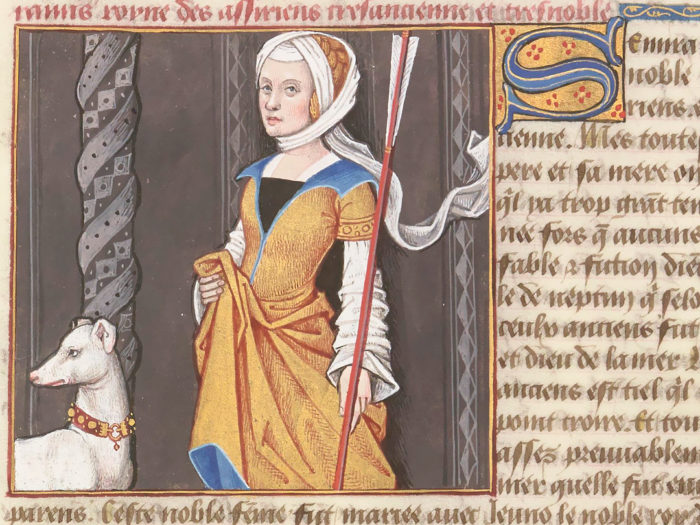 ramis royne des assiriens tresancienne et tresnoble
Semira
noble
siriens
cienne. Mes toute
pere et sa mere on
ql ya trop grāt ten
nee fors q̄ aucuns
fable ⁊ fiction dies
le de neptun q̄ selō
ceulx anciens fut
et dieu de la mer
anciens est tiel ql
point croire. Et tou
assez preuuablem
mer quelle fut en
parens. Ceste noble fēme fut mariee auec le noble roy